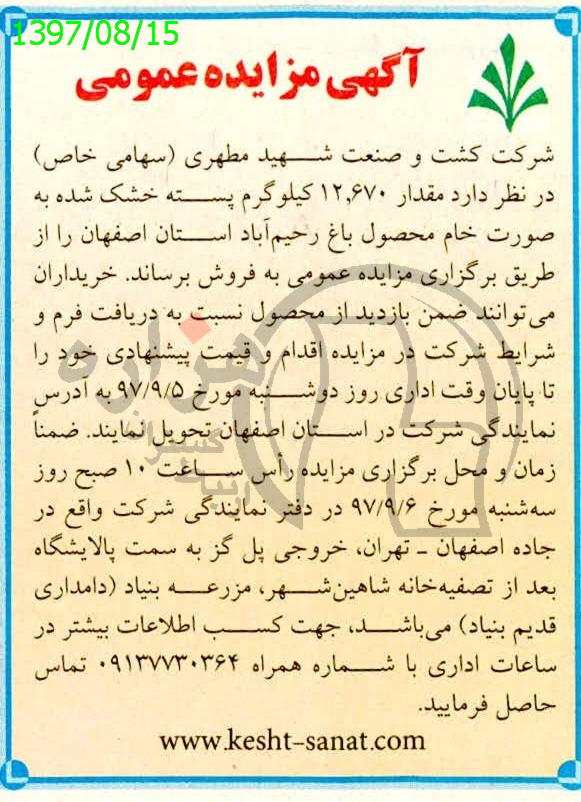 1397/08/15
آگهی مزایده عمومی
شرکت کشت و صنعت شهید مطهری (سهامی خاص)
در نظر دارد مقدار ۱۲,۶۷۰ کیلوگرم پسته خشک شده به
صورت خام محصول باغ رحیم‌آباد استان اصفهان را از
طریق برگزاری مزایده عمومی به فروش برساند. خریداران
می‌توانند ضمن بازدید از محصول نسبت به دریافت فرم و
شرایط شرکت در مزایده اقدام و قیمت پیشنهادی خود را
تا پایان وقت اداری روز دوشنبه مورخ ۹۷/۹/۵ به آدرس
نمایندگی شرکت در استان اصفهان تحویل نمایند. ضمناً
زمان و محل برگزاری مزایده رأس ساعت ۱۰ صبح روز
سه‌شنبه مورخ ۹۷/۹/۶ در دفتر نمایندگی شرکت واقع در
جاده اصفهان ـ تهران، خروجی پل گز به سمت پالایشگاه
بعد از تصفیه‌خانه شاهین‌شهر، مزرعه بنیاد (دامداری
قدیم بنیاد) می‌باشد، جهت کسب اطلاعات بیشتر در
ساعات اداری با شماره همراه ۰۹۱۳۷۷۳۰۳۶۴ تماس
حاصل فرمایید.
www.kesht-sanat.com
هزاره